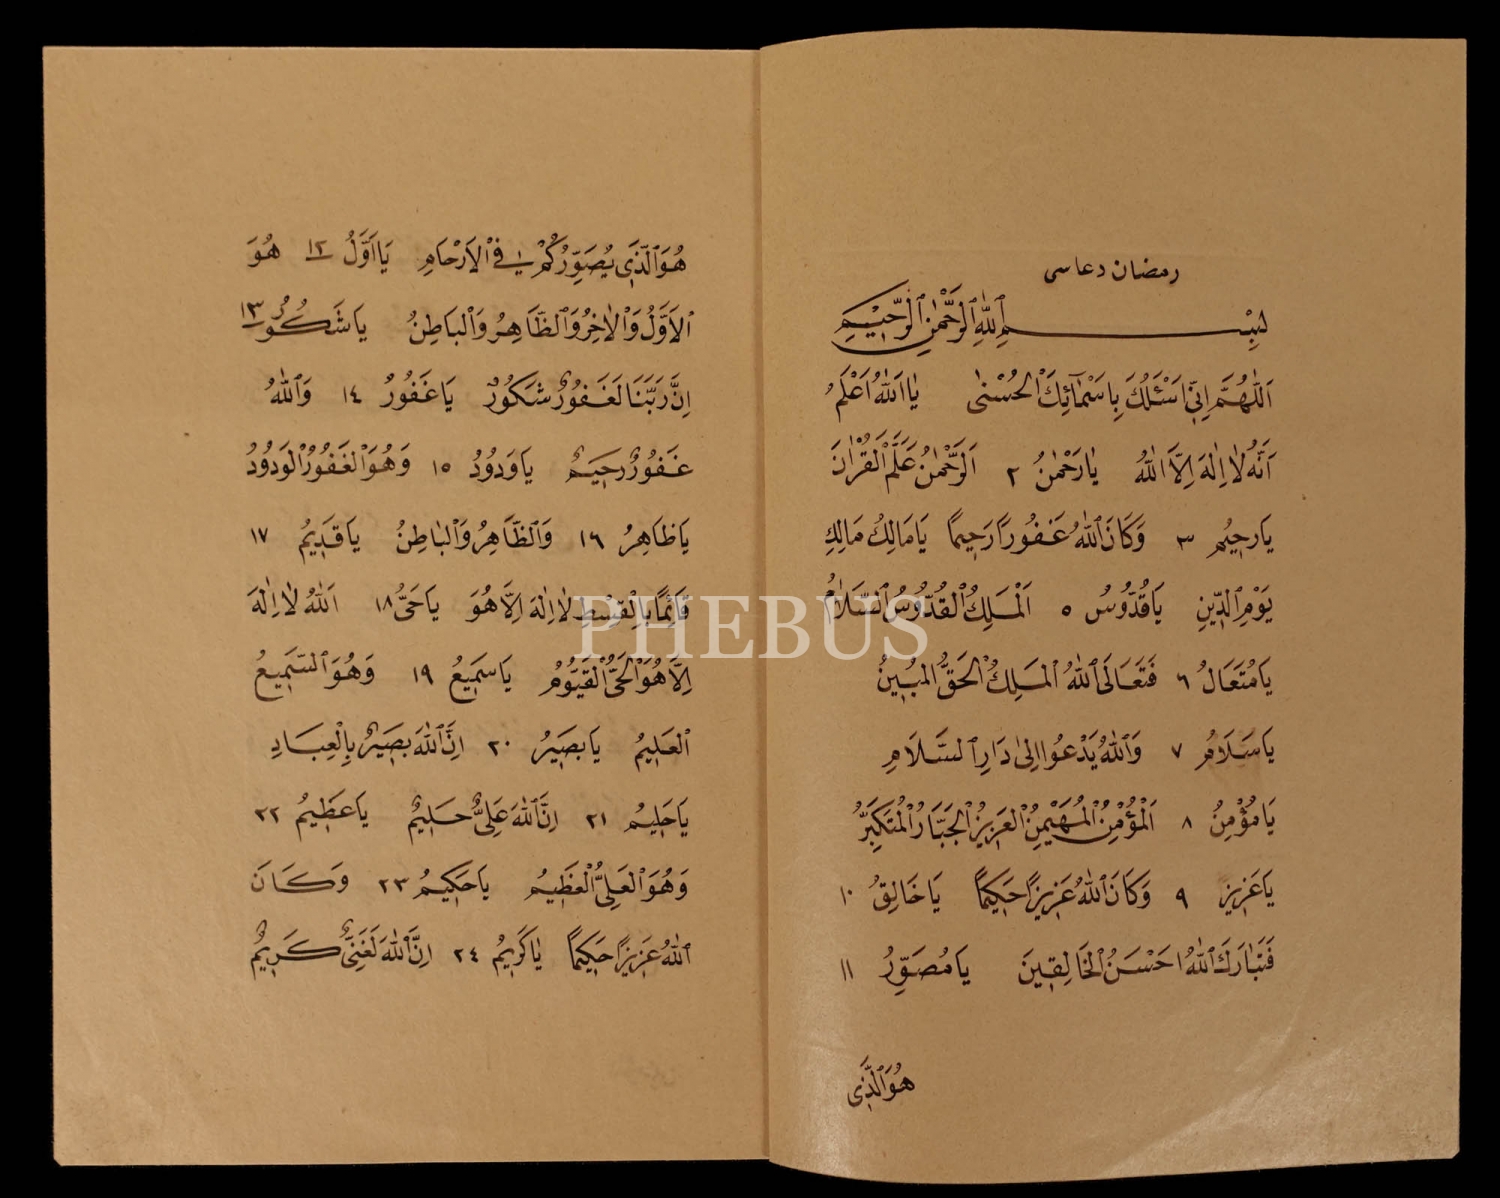 رمضان دعاسی
بِسْمِ اللّٰهِ الرَّحْمٰنِ الرَّحِيمِ
اَللّٰهُمَّ اِنّٖى اَسْئَلُكَ بِاَسْمَائِكَ الْحُسْنٰى يَا اَللّٰهُ اَعْلَمُ
اَنَّهُ لَا اِلٰهَ اِلَّا اللّٰهُ يَا رَحْمٰنُ ٢ اَلرَّحْمٰنُ عَلَّمَ الْقُرْاٰنَ
يَا رَحِيمُ ٣ وَكَانَ اللّٰهُ غَفُورًا رَحِيمًا يَا مَالِكُ مَالِكِ
يَوْمِ الدِّينِ يَا قُدُّوسُ ٥ اَلْمَلِكُ الْقُدُّوسُ السَّلَامُ
يَا مُتَعَالُ ٦ فَتَعَالَى اللّٰهُ الْمَلِكُ الْحَقُّ الْمُبِينُ
يَا سَلَامُ ٧ وَاللّٰهُ يَدْعُوا اِلٰى دَارِ السَّلَامِ
يَا مُؤْمِنُ ٨ اَلْمُؤْمِنُ الْمُهَيْمِنُ الْعَزِيزُ الْجَبَّارُ الْمُتَكَبِّرُ
يَا عَزِيزُ ٩ وَكَانَ اللّٰهُ عَزِيزًا حَكِيمًا يَا خَالِقُ ١٠
فَتَبَارَكَ اللّٰهُ اَحْسَنُ الْخَالِقِينَ يَا مُصَوِّرُ ١١
هُوَ الَّذِى
هُوَ الَّذِى يُصَوِّرُكُمْ فِى الْاَرْحَامِ يَا اَوَّلُ ١٢ هُوَ
الْاَوَّلُ وَالْاٰخِرُ وَالظَّاهِرُ وَالْبَاطِنُ يَا شَكُورُ ١٣
اِنَّ رَبَّنَا لَغَفُورٌ شَكُورٌ يَا غَفُورُ ١٤ وَاللّٰهُ
غَفُورٌ رَحِيمٌ يَا وَدُودُ ١٥ وَهُوَ الْغَفُورُ الْوَدُودُ
يَا ظَاهِرُ ١٦ وَالظَّاهِرُ وَالْبَاطِنُ يَا قَدِيمُ ١٧
قَائِمًا بِالْقِسْطِ لَا اِلٰهَ اِلَّا هُوَ يَا حَىُّ ١٨ اَللّٰهُ لَا اِلٰهَ
اِلَّا هُوَ الْحَىُّ الْقَيُّومُ يَا سَمِيعُ ١٩ وَهُوَ السَّمِيعُ
الْعَلِيمُ يَا بَصِيرُ ٢٠ اِنَّ اللّٰهَ بَصِيرٌ بِالْعِبَادِ
يَا حَلِيمُ ٢١ اِنَّ اللّٰهَ عَلِىٌّ حَلِيمٌ يَا عَظِيمُ ٢٢
وَهُوَ الْعَلِىُّ الْعَظِيمُ يَا حَكِيمُ ٢٣ وَكَانَ
اللّٰهُ عَزِيزًا حَكِيمًا يَا كَرِيمُ ٢٤ اِنَّ اللّٰهَ لَغَنِىٌّ كَرِيمٌ
PHEBUS